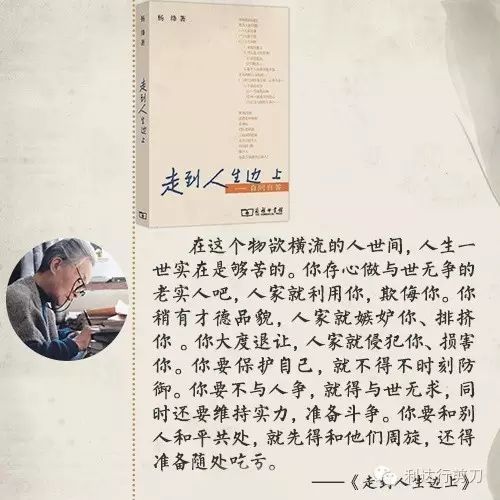 杨绛著
走到人生边上
走到人生边上
——自问自答
商务印书馆
在这个物欲横流的人世间，人生一
世实在是够苦的。你存心做与世无争的
老实人吧，人家就利用你，欺侮你。你
稍有才德品貌，人家就嫉妒你、排挤
你。你大度退让，人家就侵犯你、损害
你。你要保护自己，就不得不时刻防
御。你要不与人争，就得与世无求，同
时还要维持实力，准备斗争。你要和别
人和平共处，就先得和他们周旋，还得
准备随处吃亏。
——《走到人生边上》
利达行剪刀